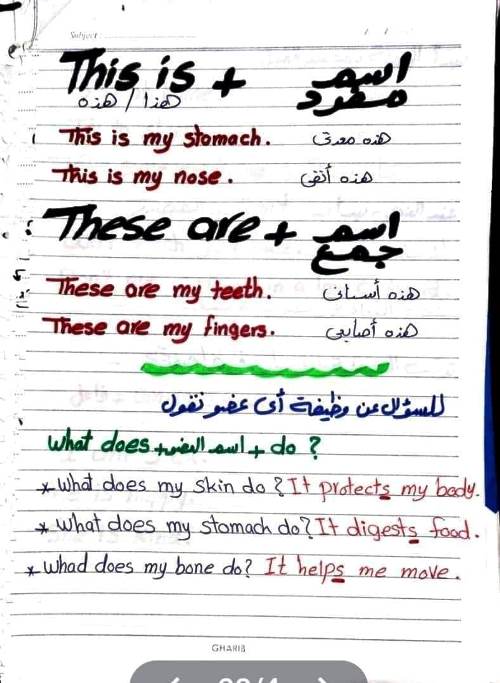 Subject:
This is + اسم مفرد
هذا / هذه
This is my stomach. هذه معدتى
This is my nose. هذه أنفى
These are + اسم جمع
These are my teeth. هذه أسنانى
These are my fingers. هذه أصابعى
للسؤال عن وظيفة أى عضو نقول
What does + اسم العضو + do ?
* What does my skin do ? It protects my body.
* What does my stomach do? It digests food.
* Whad does my bone do? It helps me move.
GHARIB